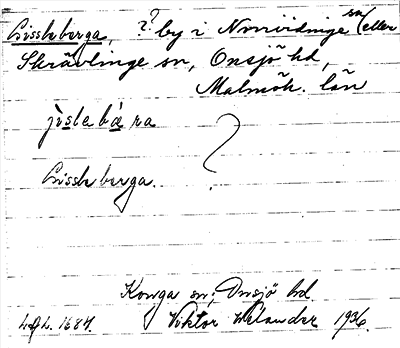 Gissleberga, ? by i Norrvidinge sn (eller
Skrävlinge sn, Onsjö hd,
Malmöh. län
jislebára ?
Gissleberga.
Konga sn; Onsjö hd
Viktor Welander 1936.